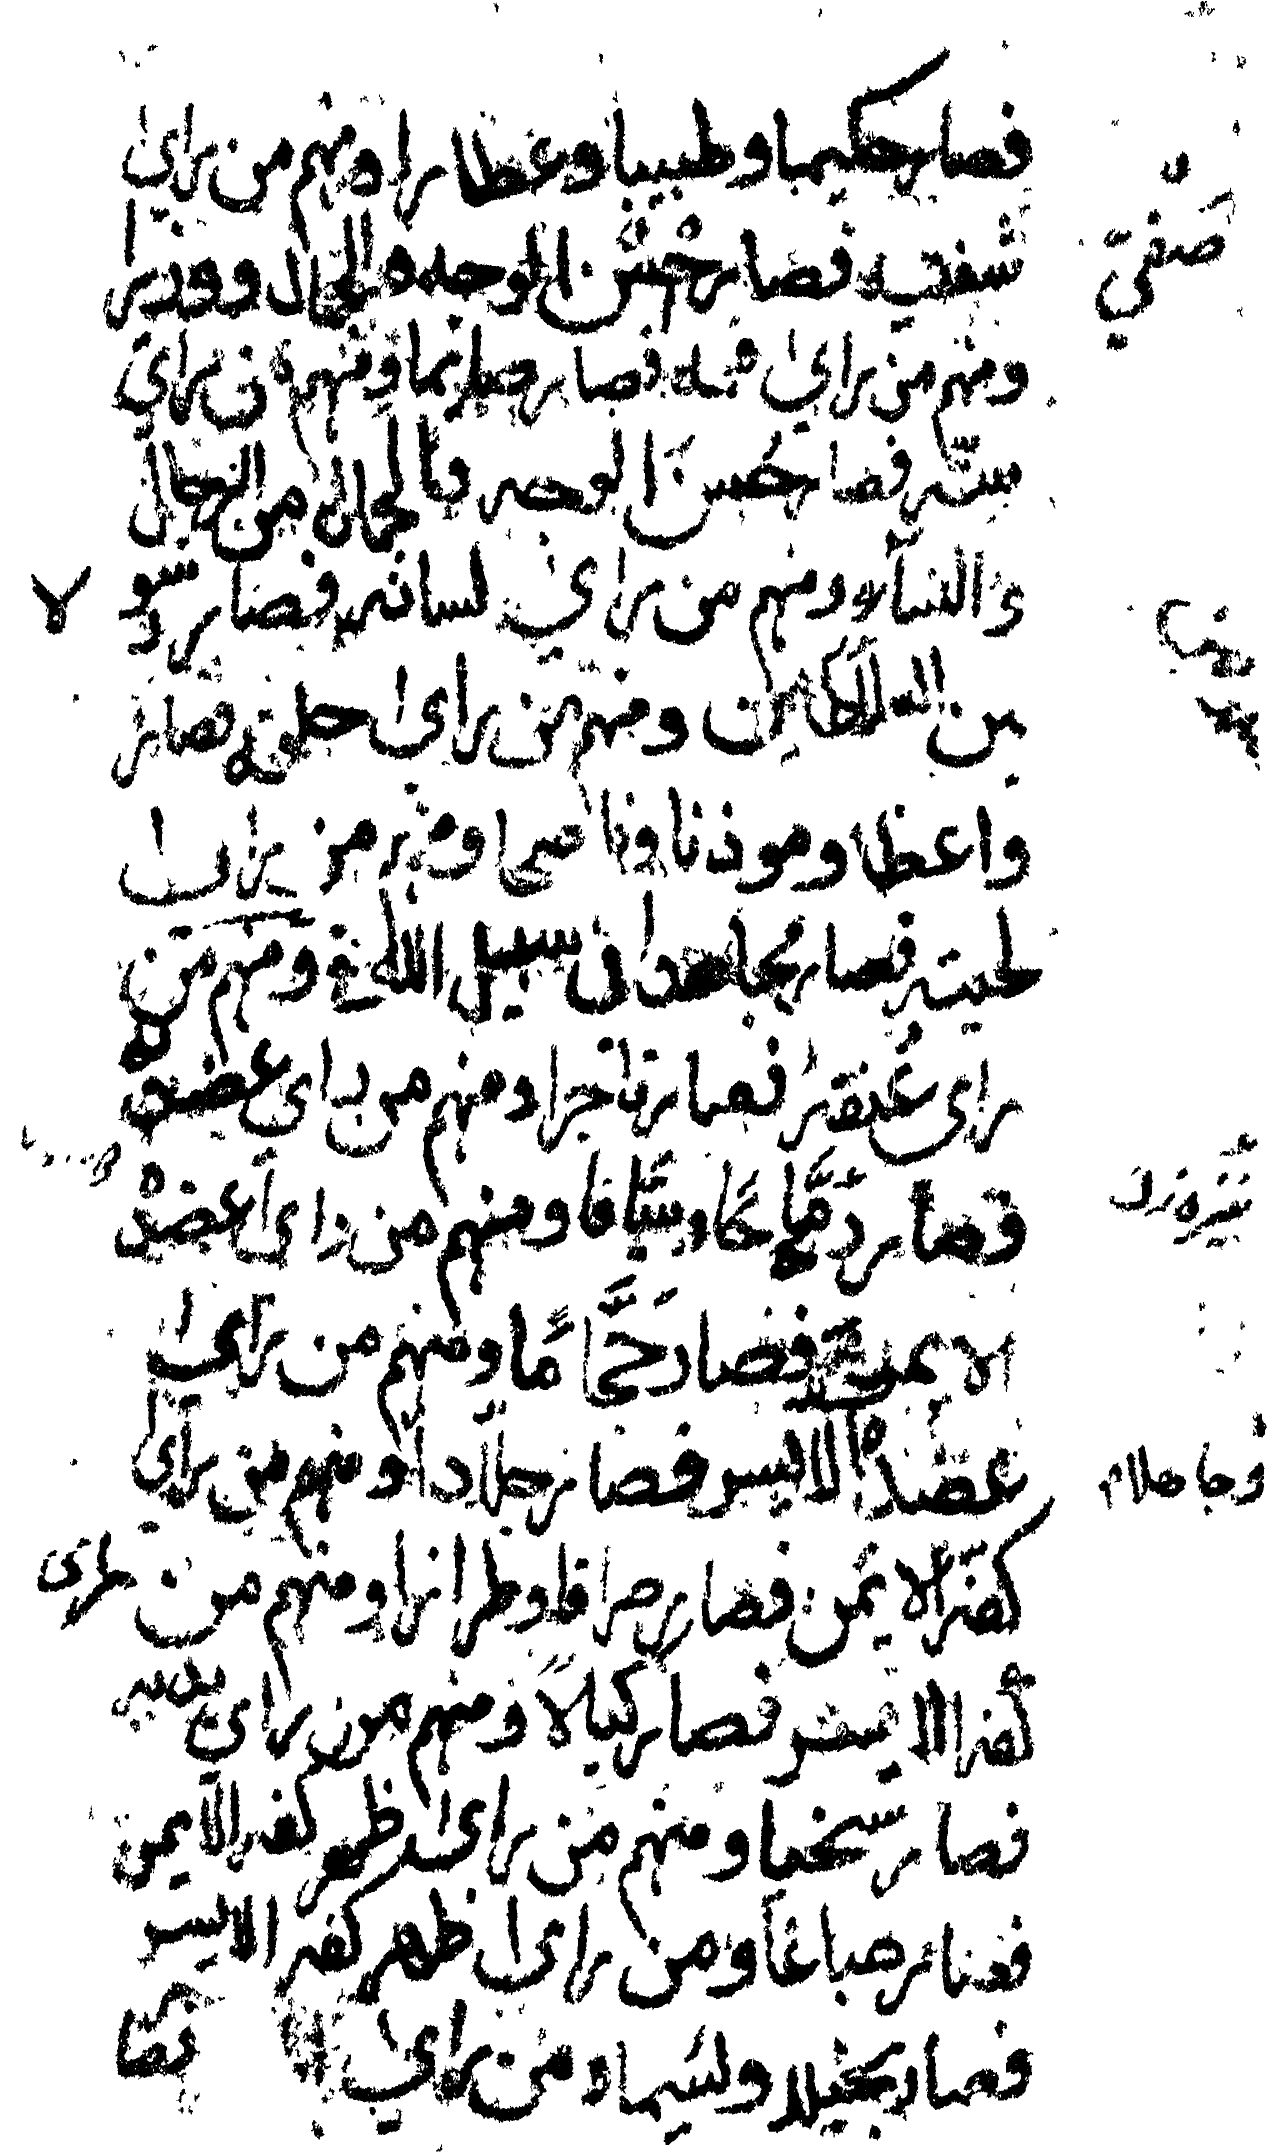 فصار حكيما وطبيبا وعطارا ومنهم من راى
شفتيه فصار حسن الوجه والحال ووزيرا
ومنهم من راى فمه فصار صايما ومنهم من راى
سنه فصار حسن الوجه والحال من الرجال
والنساء ومنهم من راى لسانه فصار رسو لا
بين السلاطين ومنهم من راى حلقه فصار
واعظا وموذنا وناصحا ومنهم من راى
لحيته فصار مجاهدا في سبيل الله ومنهم من
راى عنقه فصار تاجرا ومنهم من راى عضده
فصار رمّاحًا وسيّافا ومنهم من راى عضده
الايمن فصار حجّامًا ومنهم من راى
عضده الايسر فصار جلّادا ومنهم من راى
كفه الايمن فصار صرافا وطرازا ومنهم من راى
كفه الايسر فصار كيالًا ومنهم من راى يديه
فصار سخيا ومنهم من راى ظهر كفه الايمن
فصار صباغا ومن راى ظهر كفه الايسر
فصار بخيلا ولئيما ومن راى فصار